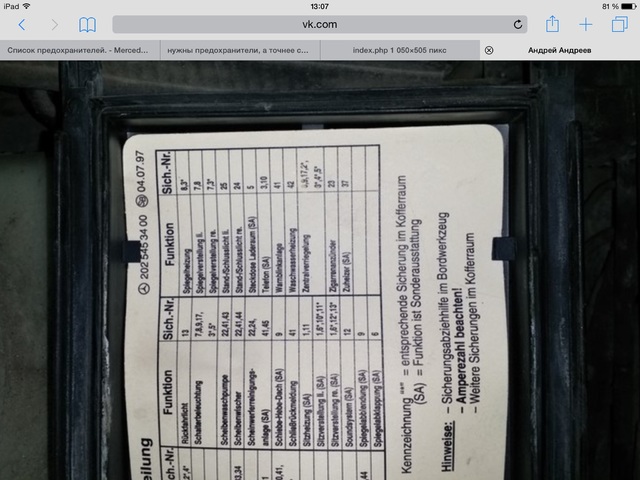 iPad
13:07
81 %
vk.com
Список предохранителей. - Merced...
нужны предохранители, а точнее с...
index.php 1 050×505 пикс
Андрей Андреев
202 545 34 00 04.07.97
eilung
ch.-Nr. Funktion Sich.-Nr. Funktion Sich.-Nr.
Rückfahrlicht 13 Spiegelheizung 8,3*
Schalterbeleuchtung 7,8,9,17, Spiegelverstellung li. 7,8
3*,5* Spiegelverstellung re. 7,3*
Scheibenwaschpumpe 22,41,43 Stand-/Schlusslicht li. 25
Scheibenwischer 22,41,44 Stand-/Schlusslicht re. 24
Scheinwerferreinigungs- 22,24, Steckdose Laderaum (SA) 5
anlage (SA) 41,45 Telefon (SA) 3,10
Schiebe-Hebe-Dach (SA) 9 Warnblinkanlage 41
Schließrückmeldung 41 Waschwasserheizung 42
Sitzheizung (SA) 1,11 Zentralverriegelung
Sitzverstellung li. (SA) 1,6*,10*,11*
Sitzverstellung re. (SA) 1,6*,12*,13* Zigarrenanzünder 23
Soundsystem (SA) 12 Zuheizer (SA) 37
Spiegelabblendung (SA) 9
Spiegelabklappung (SA) 6
Kennzeichnung "*" = entsprechende Sicherung im Kofferraum
(SA) = Funktion ist Sonderausstattung
Hinweise: – Sicherungsabziehhilfe im Bordwerkzeug
– Amperezahl beachten!
– Weitere Sicherungen im Kofferraum